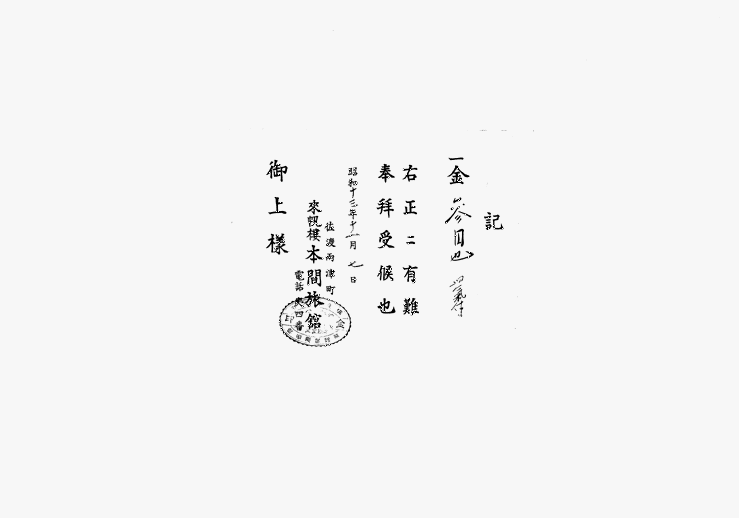 記
一金参円也
右正ニ有難
奉拝受候也
昭和十三年十一月七日
佐渡両津町
本間旅舘
電話 四番
御上様